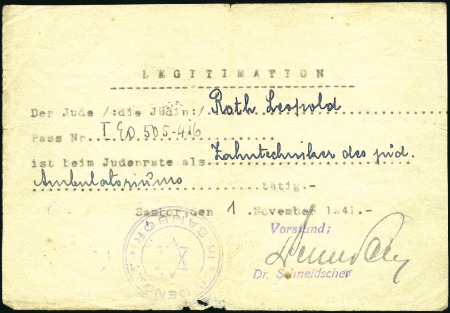 LEGITIMATION
Der Jude /:die Jüdin:/ Rath Leopold
Pass Nr. I 90.505-416
ist beim Judenrate als Zahntechniker des jüd.
Ambulatoriums tätig.-
Sambor, den 1 November 1941.-
Vorstand:
Dr. Schneidscher
IN SAMBOR